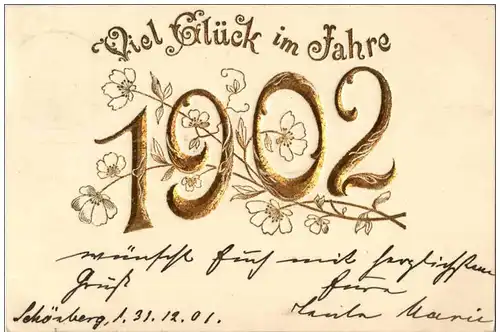 Viel Glück im Jahre
1902
wünscht Euch mit herzlichstem
Gruß Eure
Marie
Schönberg, 31.12.01.